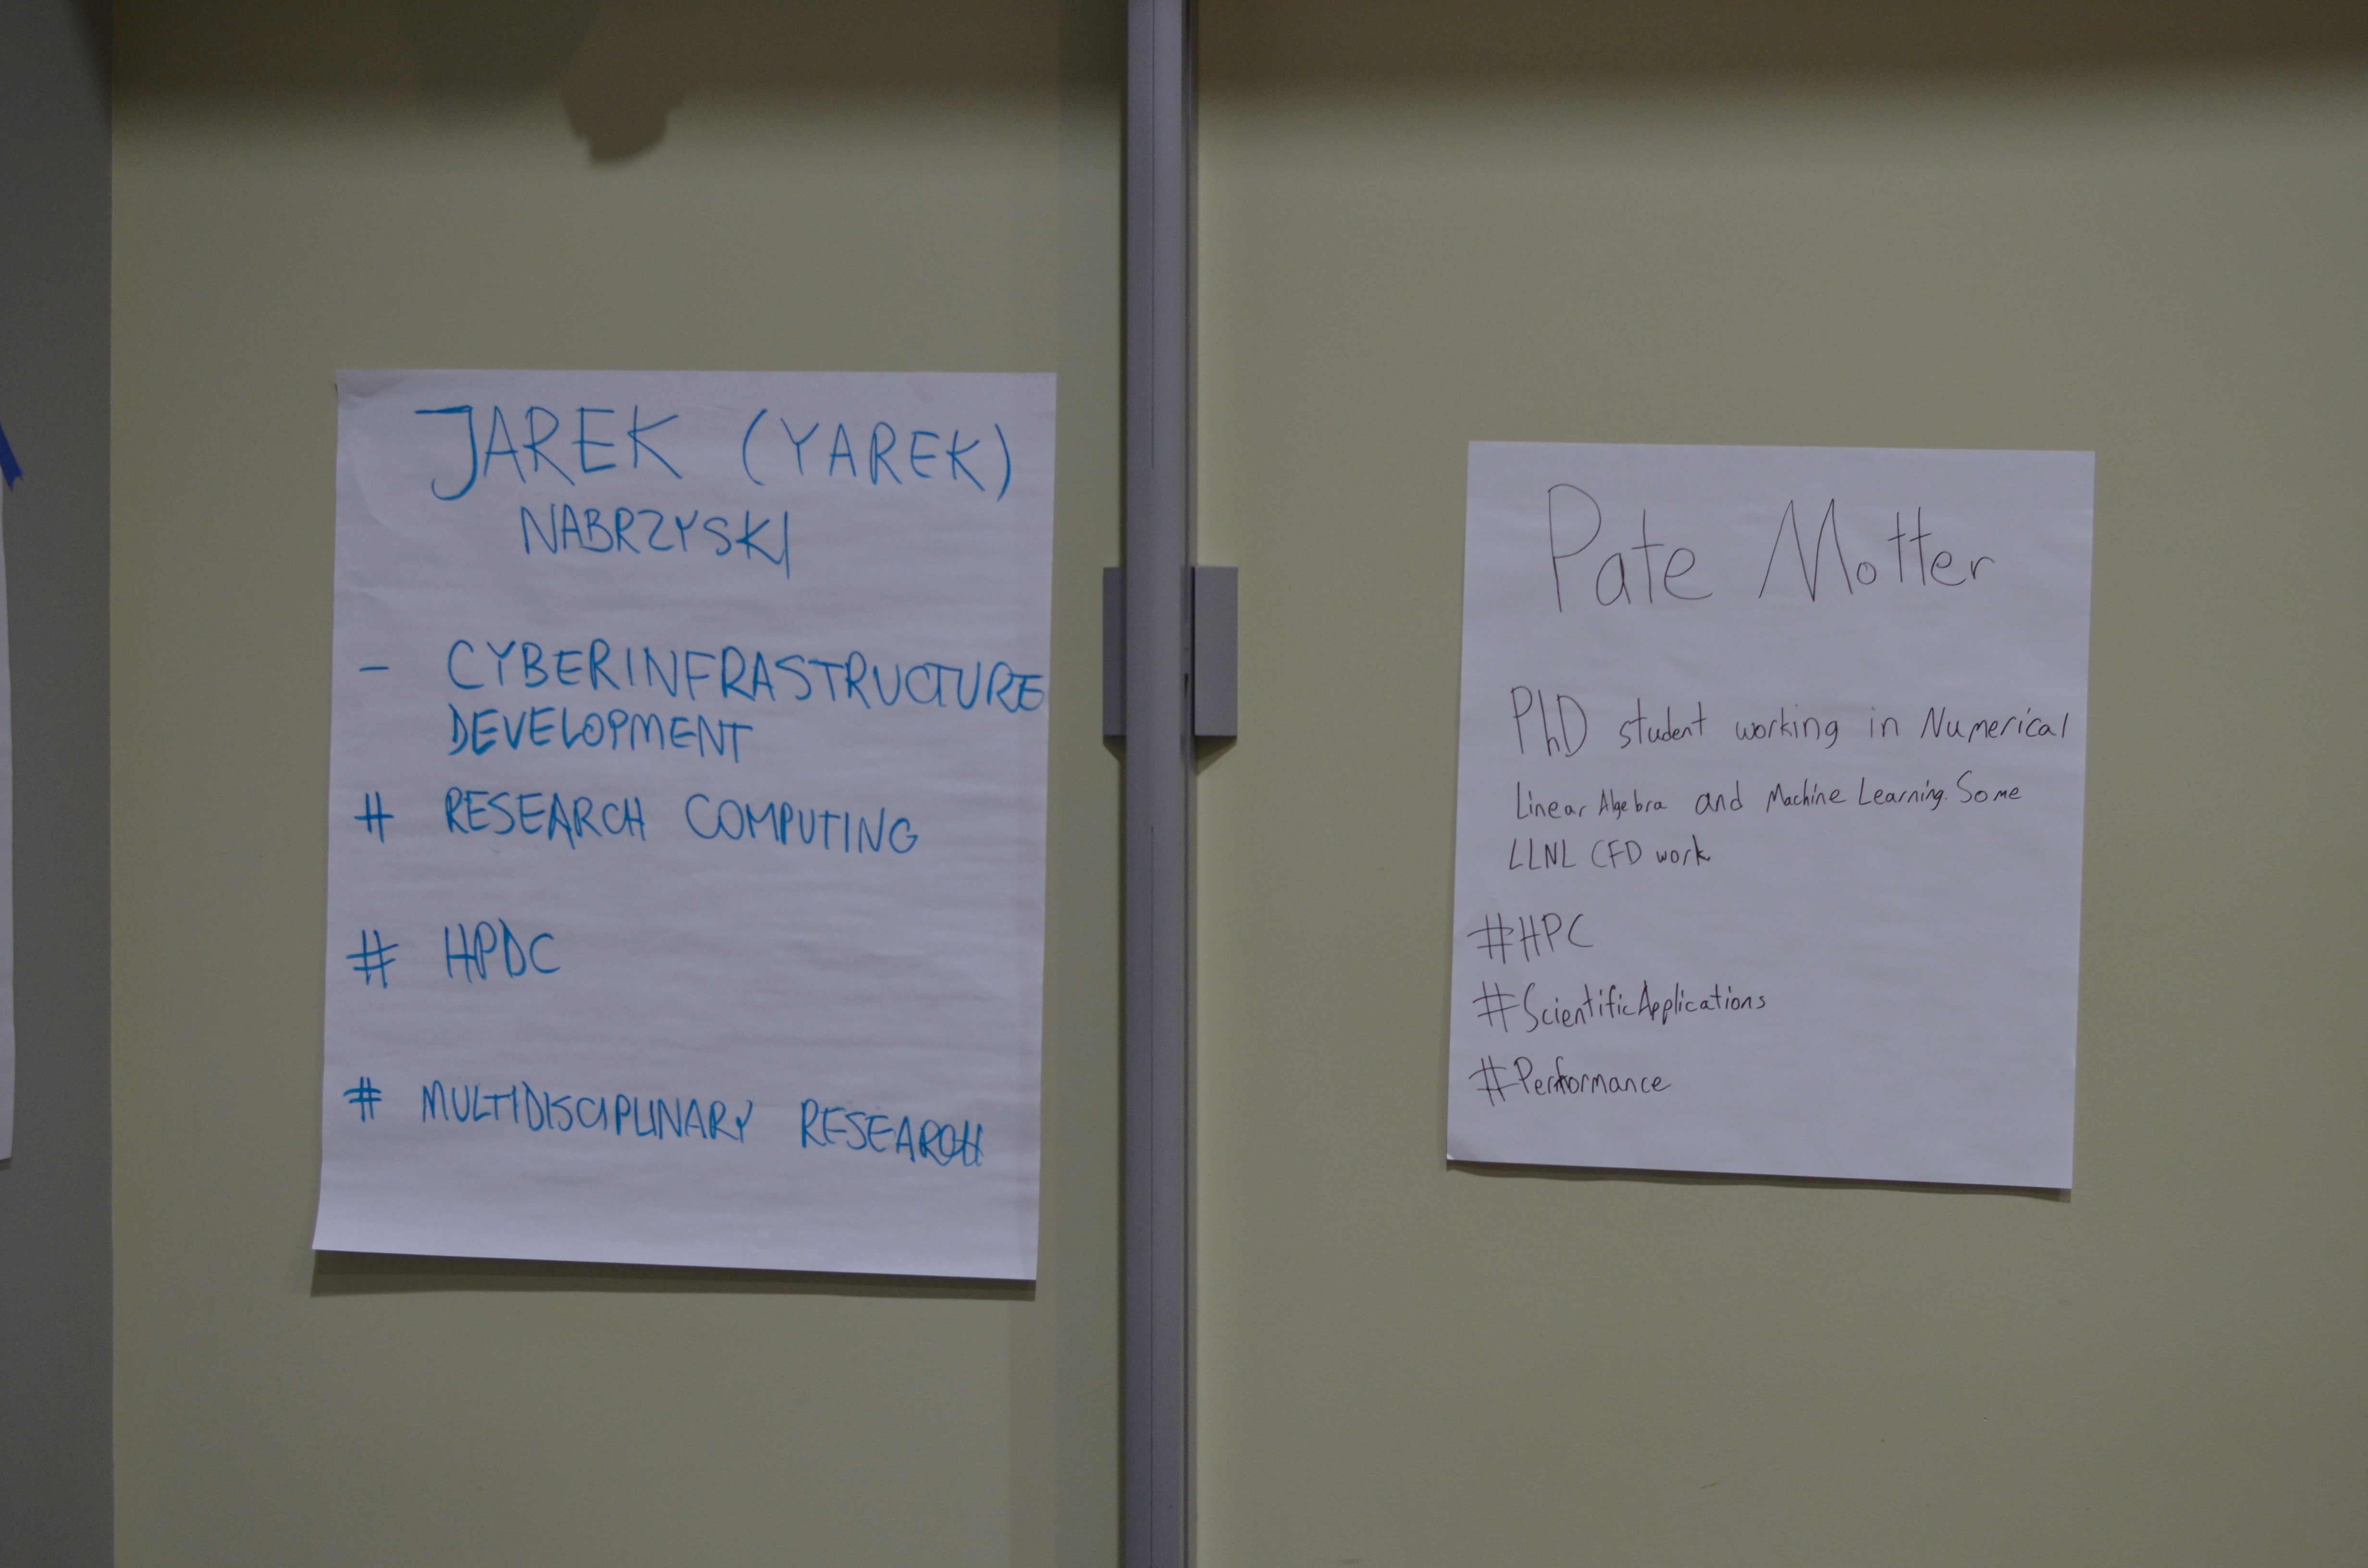 JAREK (YAREK)
NABRZYSKI
- CYBERINFRASTRUCTURE
DEVELOPMENT
# RESEARCH COMPUTING
# HPDC
# MULTIDISCIPLINARY RESEARCH
Pate Motter
PhD student working in Numerical
Linear Algebra and Machine Learning. Some
LLNL CFD work
#HPC
#ScientificApplications
#Performance